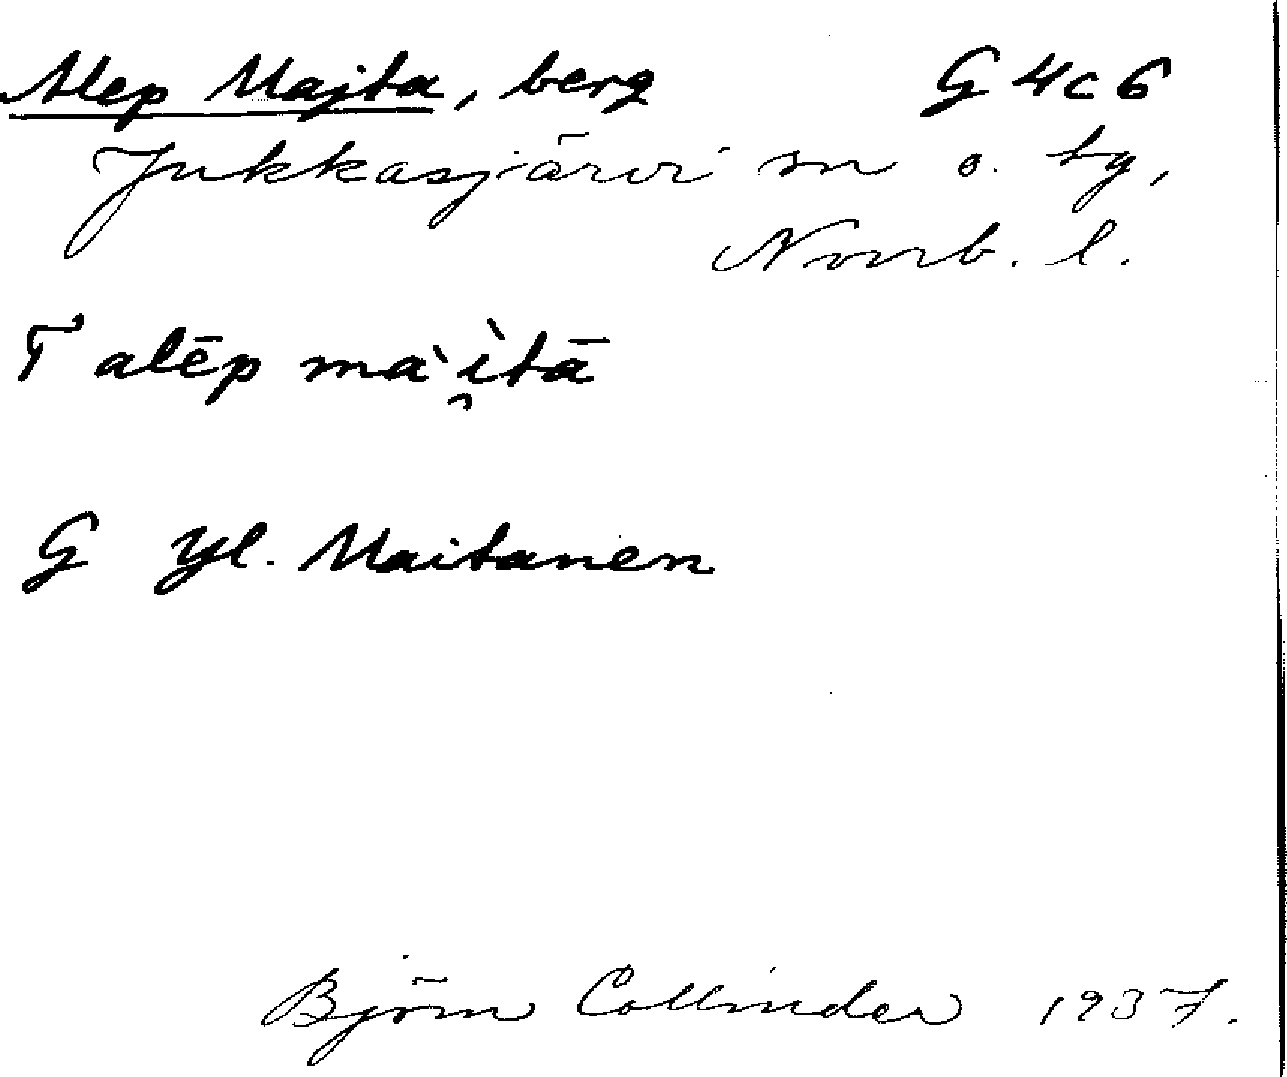 Alep Majta, berg G 4c6
Jukkasjärvi sn o. tg,
Norrb. l.
T alēp mài̯tā
G Yl. Maitanen
Björn Collinder 1937.